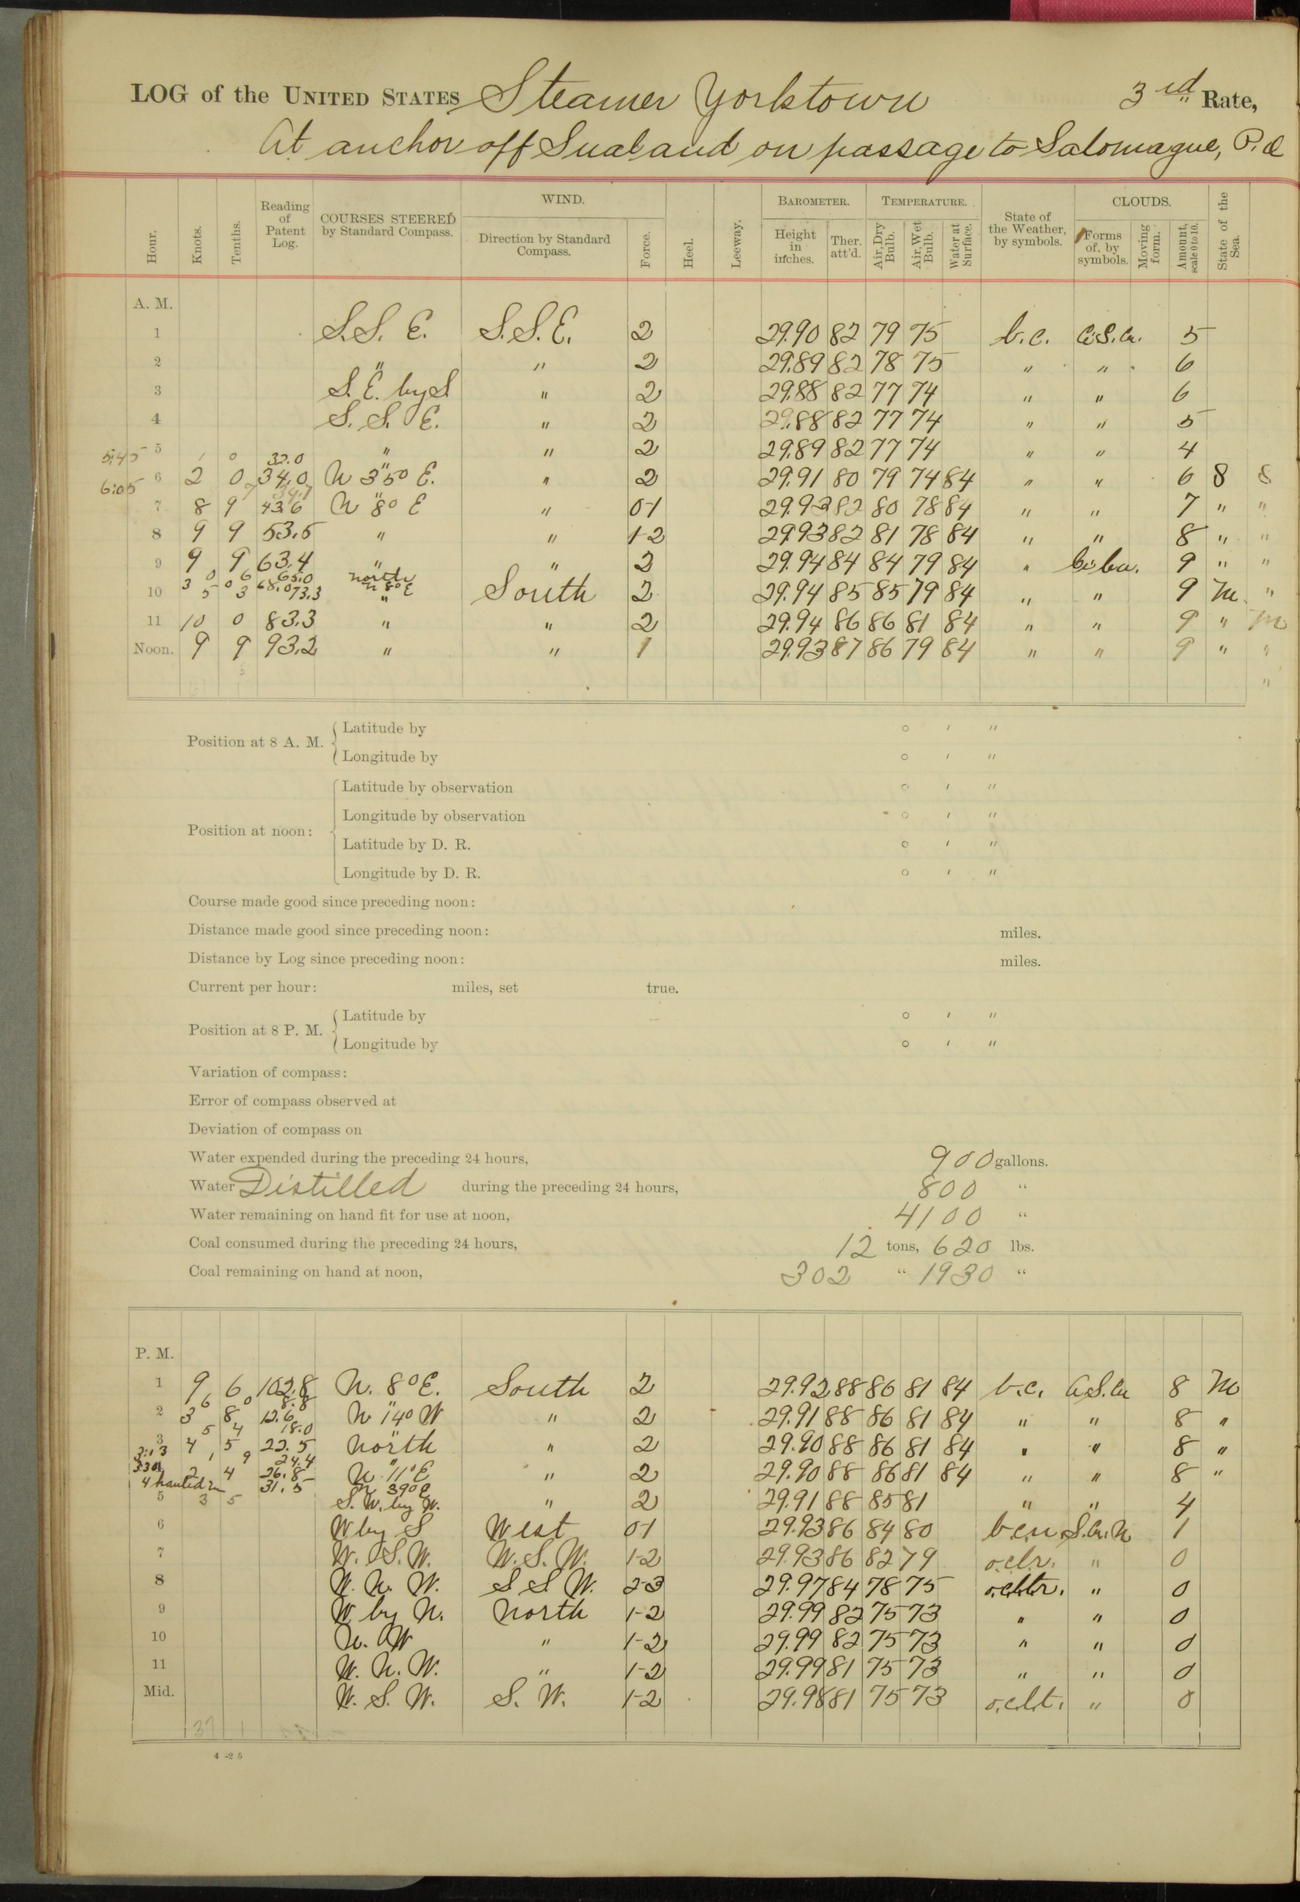 LOG of the UNITED STATES Steamer Yorktown 3rd Rate,
At anchor off Sual and on passage to Salomague, P.I.
Hour. Knots. Tenths. Reading of Patent Log. COURSES STEERED by Standard Compass. WIND. Direction by Standard Compass. Force. Heel. Leeway. BAROMETER. Height in inches. Ther. att'd. TEMPERATURE. Air, Dry Bulb. Air, Wet Bulb. Water at Surface. State of the Weather, by symbols. CLOUDS. Forms of, by symbols. Moving form. Amount, scale 0 to 10. State of the Sea.
A. M.
1 S.S.E. S.S.E. 2 29.90 82 79 75 b.c. Ci.S.Cu. 5
2 " " 2 29.89 82 78 75 " " 6
3 S.E. by S " 2 29.88 82 77 74 " " 6
4 S.S.E. " 2 29.88 82 77 74 " " 5
5:45 5 1 0 32.0 " " 2 29.89 82 77 74 " " 4
6:05 6 2 0 34.0 N 35° E. " 2 29.91 80 79 74 84 " " 6 8 8
7 8 9 43.6 N 8° E " 0-1 29.93 82 80 78 84 " " 7 " "
8 9 9 53.5 " " 1-2 29.93 82 81 78 84 " " 8 " "
9 9 9 63.4 " " 2 29.94 84 84 79 84 " Ci.Cu. 9 " "
0 6 65.0 North
10 3 0 68.0 N 8° E South 2 29.94 85 85 79 84 " " 9 M "
5 3 73.3 "
11 10 0 83.3 " " 2 29.94 86 86 81 84 " " 9 " M
Noon. 9 9 93.2 " " 1 29.93 87 86 79 84 " " 9 " "
Position at 8 A. M. Latitude by ° ′ ″
Longitude by ° ′ ″
Position at noon: Latitude by observation ° ′ ″
Longitude by observation ° ′ ″
Latitude by D. R. ° ′ ″
Longitude by D. R. ° ′ ″
Course made good since preceding noon:
Distance made good since preceding noon: miles.
Distance by Log since preceding noon: miles.
Current per hour: miles, set true.
Position at 8 P. M. Latitude by ° ′ ″
Longitude by ° ′ ″
Variation of compass:
Error of compass observed at
Deviation of compass on
Water expended during the preceding 24 hours, 900 gallons.
Water Distilled during the preceding 24 hours, 800 "
Water remaining on hand fit for use at noon, 4100 "
Coal consumed during the preceding 24 hours, 12 tons, 620 lbs.
Coal remaining on hand at noon, 302 " 1930 "
P. M.
1 9 6 102.8 N. 8° E. South 2 29.92 88 86 81 84 b.c. Ci.S.Cu 8 M
6 0 8.8
2 3 8 12.6 N 14° W " 2 29.91 88 86 81 84 " " 8 "
5 4 18.0
3 4 5 22.5 North " 2 29.90 88 86 81 84 " " 8 "
3:13 1 9 24.4 "
3:30 2 4 26.8 N 11° E " 2 29.90 88 86 81 84 " " 8 "
4 hauled in 31.5 N 39° E
5 3 5 S.W. by W. " 2 29.91 88 85 81 " " 4
6 W by S West 0-1 29.93 86 84 80 S.Cu.N 1
7 W.S.W. W.S.W. 1-2 29.93 86 82 79 " 0
8 W.N.W. S S W. 2-3 29.97 84 78 75 " 0
9 W by N. North 1-2 29.99 82 75 73 " " 0
10 N.W " 1-2 29.99 82 75 73 " " 0
11 W.N.W. " 1-2 29.99 81 75 73 " " 0
Mid. W.S.W. S.W. 1-2 29.98 81 75 73 o.c.l.t. " 0
4-25